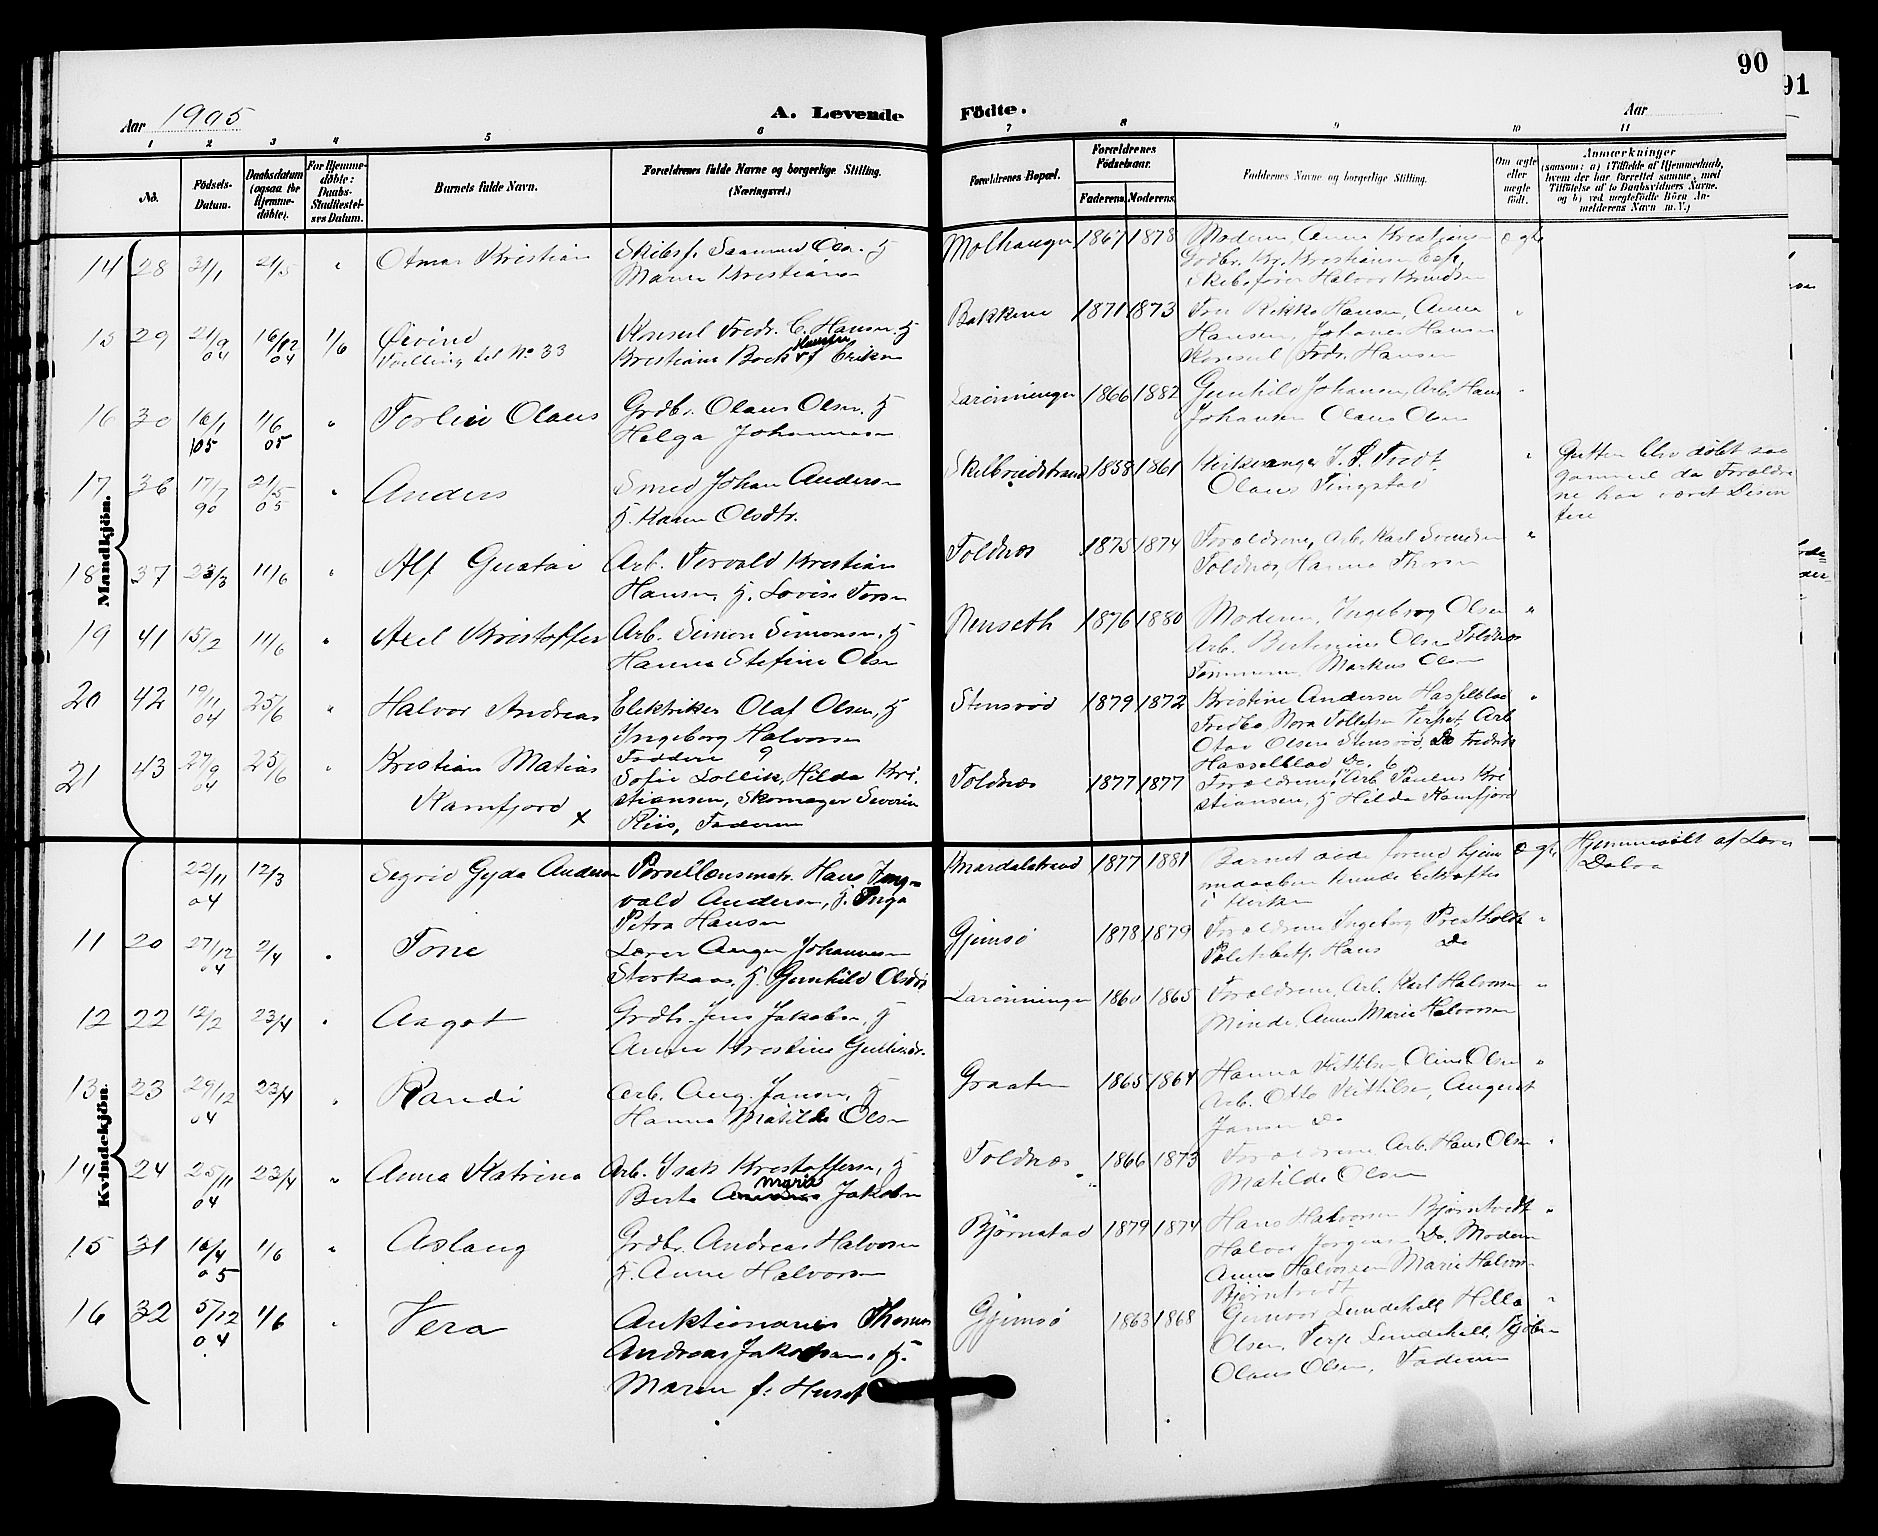 90
91
Aar 1905
A. Levende Födte.
Aar
1 2 3 4 5 6 7 8 9 10 11
No.
Födsels-Datum.
Daabsdatum (ogsaa for Hjemmedöbte).
For Hjemmedöbte: Daabs-Stadfæstelses Datum.
Barnets fulde Navn.
Forældrenes fulde Navne og borgerlige Stilling.
(Næringsvei.)
Forældrenes Bopæl.
Forældrenes Födselsaar.
Faderens
Moderens
Faddernes Navne og borgerlige Stilling.
Om ægte eller uægte födt.
Anmærkninger
(saasom: a) i Tilfælde af Hjemmedaab,
hvem der har forrettet samme, med
Tilföielse af to Daabsvidners Navne.
og b) ved uægtefödte Börn Anmelderens Navn m.V.)
Mandkjön.
14 28 31/1 21/5 " Otmar Kristian
Maren Kristiansen
1867 1878 Moderen, Anna Kristiansen
Skibsfører Halvor Knudsen
15 29 21/9 04 16/12 04 1/6 Øivind
Tvilling, det No 33
Konsul Fredr. C. Hansen, H
Bakkene 1871 1873 Fru Rikke Hansen, Anna
Hansen, Johanes Hansen
Konsul Fredr. Hansen
16 30 16/1 05 1/6 05 " Torleiv Olaus
Grdbr. Olaus Olsen, H
Helga Johannesen
Larønningen 1866 1882 Gunhild Johansen, Arb. Hans
Johansen Olaus Olsen
17 36 17/7 90 21/5 05 " Anders
Smed Johan Andersen
H. Karen Olsdtr.
Skilbredstrand 1858 1861 Kirkesanger
Olaus Tingstad
Gutten blev døbt saa
gammel da Forældre
ne har været Disen
tere
18 37 23/3 11/6 " Alf Gustav
Arb. Torvald Kristian
Hansen, H. Lovise Torsen
Toldnes 1875 1874 Forældrene, Arb. Karl Svendsen
Toldnes, Hanna Thorsen
19 41 15/2 11/6 " Axel Kristoffer
Arb. Simon Simonsen, H
Hanna Stefine Olsen
Nenseth 1876 1880 Moderen, Ingeborg Olsen "
Arb. Bertinius Olsen Toldnes
Tømmerm. Markus Olsen
20 42 19/11 04 25/6 " Halvor Andreas
Elektriker Olaf Olsen, H
Ingeborg Halvorsen
Stensrød 1879 1872 Kristine Andersen Hasselblad "
Fredbo, Nora Tollefsen Arb
Olav Olsen Stensrød, Do Fredrik
Hasselblad Do.
21 43 27/9 04 25/6 " Kristian Matias
Kamfjord x
Faddere
Sofie Lollik, Hilda Kri
stiansen, Skomager Severin
Riis, Faderen
Toldnes 1877 1877 Forældrene, Arb. Paulus Kri
stiansen, H Hilda Kamfjord
Kvindekjön.
22/11 04 12/3 Sigrid Gyda Andersen
Porsellænsmstr. Hans Ing-
vald Andersen, H. Inga
Petra Hansen
Knardalstrand 1877 1881 Barnet døde forend hjem
medaaben kunde bekræftes
i Kirken
ægte
Hjemmedøbt af Lærer
Dalva
11 20 27/12 04 2/4 " Tone
Lærer Aanon Johannesen
Storkaas, H. Gunhild Olsdtr.
Gjemsø 1878 1879 Forældrene Ingeborg Prestholdt "
Politibetj. Hans Do
12 22 12/2 23/4 " Aagot
Grdbr. Jens Jakobsen, H
Anne Kristine Gulliksdr.
Larønningen 1860 1865 Forældrene, Arb. Karl Halvorsen "
Minde, Anne Marie Halvorsen
13 23 29/12 04 23/4 " Randi
Arb. Aug. Jansen, H
Hanna Matilde Olsen
Graaten 1865 1864 Hanna Kittilsen, Oline Olsen "
Arb. Otto Kittilsen, August
Jansen Do
14 24 25/11 04 23/4 " Anna Katrina
Arb. Isak Kristoffersen, H
Berte Maria Jakobsen
Toldnes 1866 1873 Forældrene Arb. Hans Olsen "
Matilde Olsen
15 31 16/4 05 1/6 " Aslaug
Grdbr. Andreas Halvorsen
H. Anne Halvorsen
Bjørnstad 1879 1874 Hans Halvorsen Bjørntvedt "
Halvor Jørgensen Do. Moderen
Anne Halvorsen Marie Halvorsen
Bjørntvedt
16 32 5/12 04 1/6 " Vera
Auktionarius Thomas
Andreas Jakobsen, H.
Maren f. Huset
Gjemsø 1863 1868 Gunvor Lundehall Hilla "
Olsen, Terje Lundehall,
Olaus Olsen, Faderen